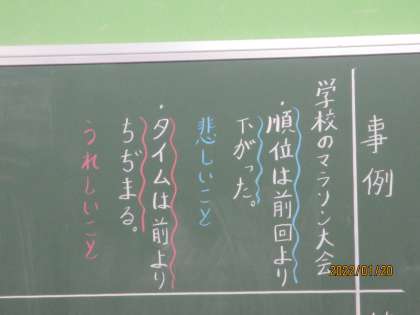 事例
学校のマラソン大会
・順位は前回より
下がった。
悲しいこと
・タイムは前より
ちぢまる。
うれしいこと
2022/01/20